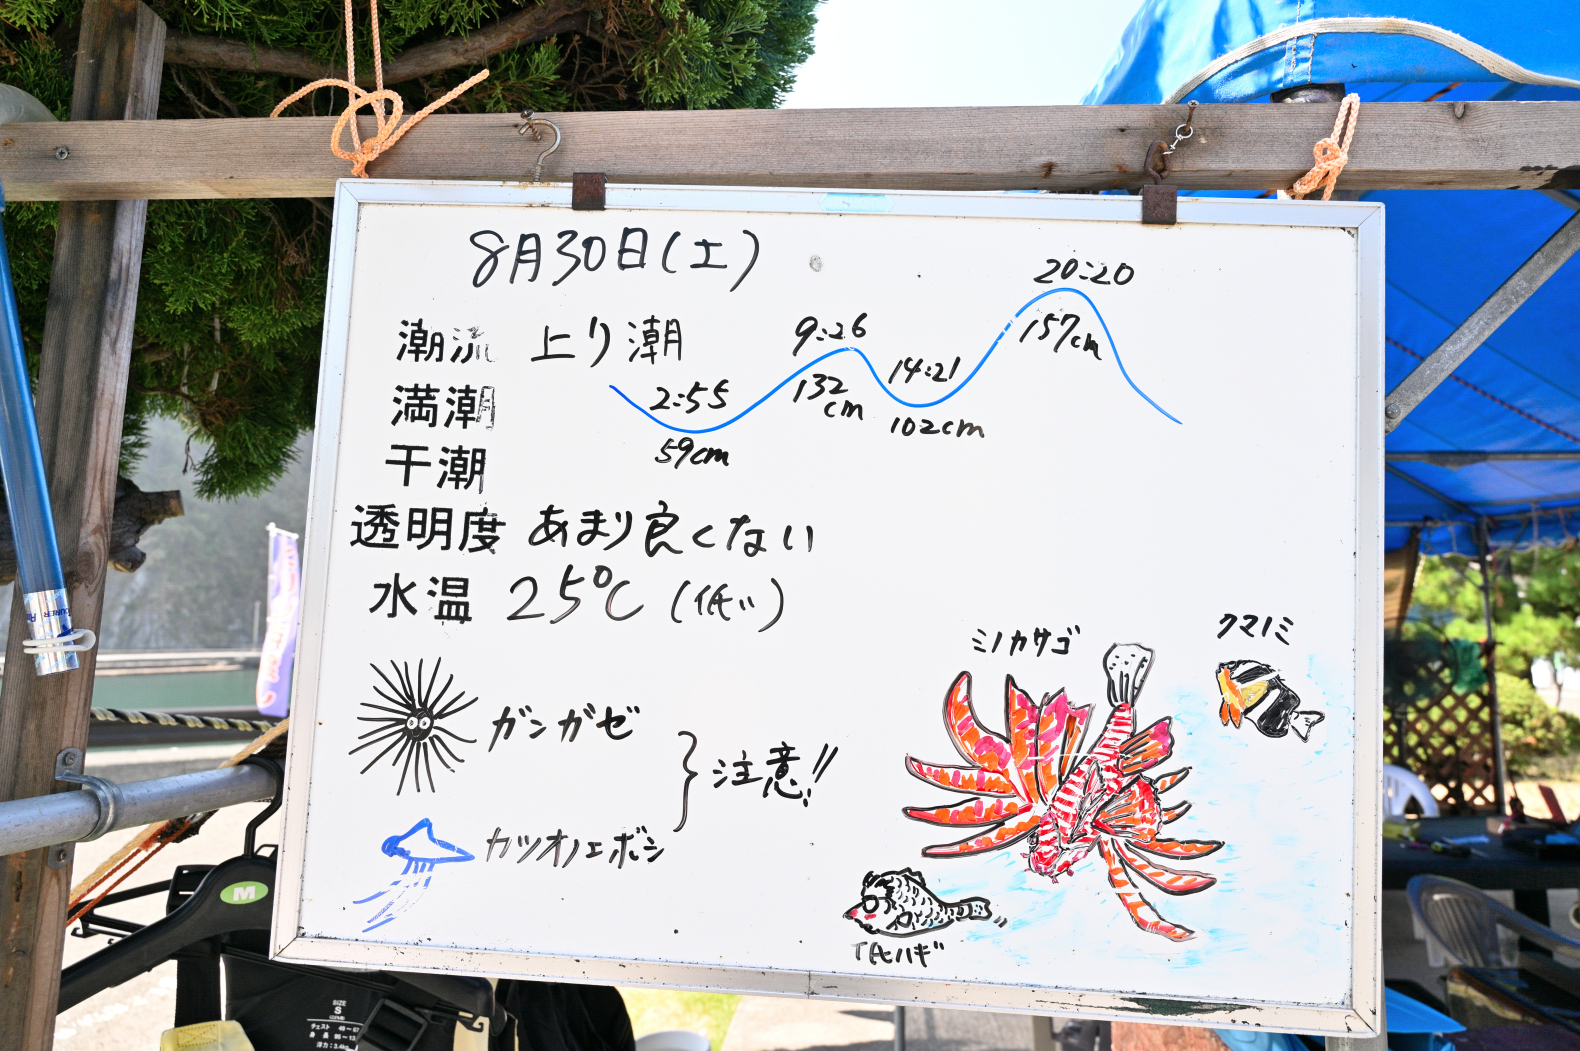 8月30日(土)
潮流 上り潮
満潮
干潮
2:55
59cm
9:26
132cm
14:21
102cm
20:20
157cm
透明度 あまり良くない
水温 25℃ (低い)
ガンガゼ
カツオノエボシ
注意!!
ミノカサゴ
クマノミ
M
SIZE
S
チェスト
身長
浮力:3.4kg